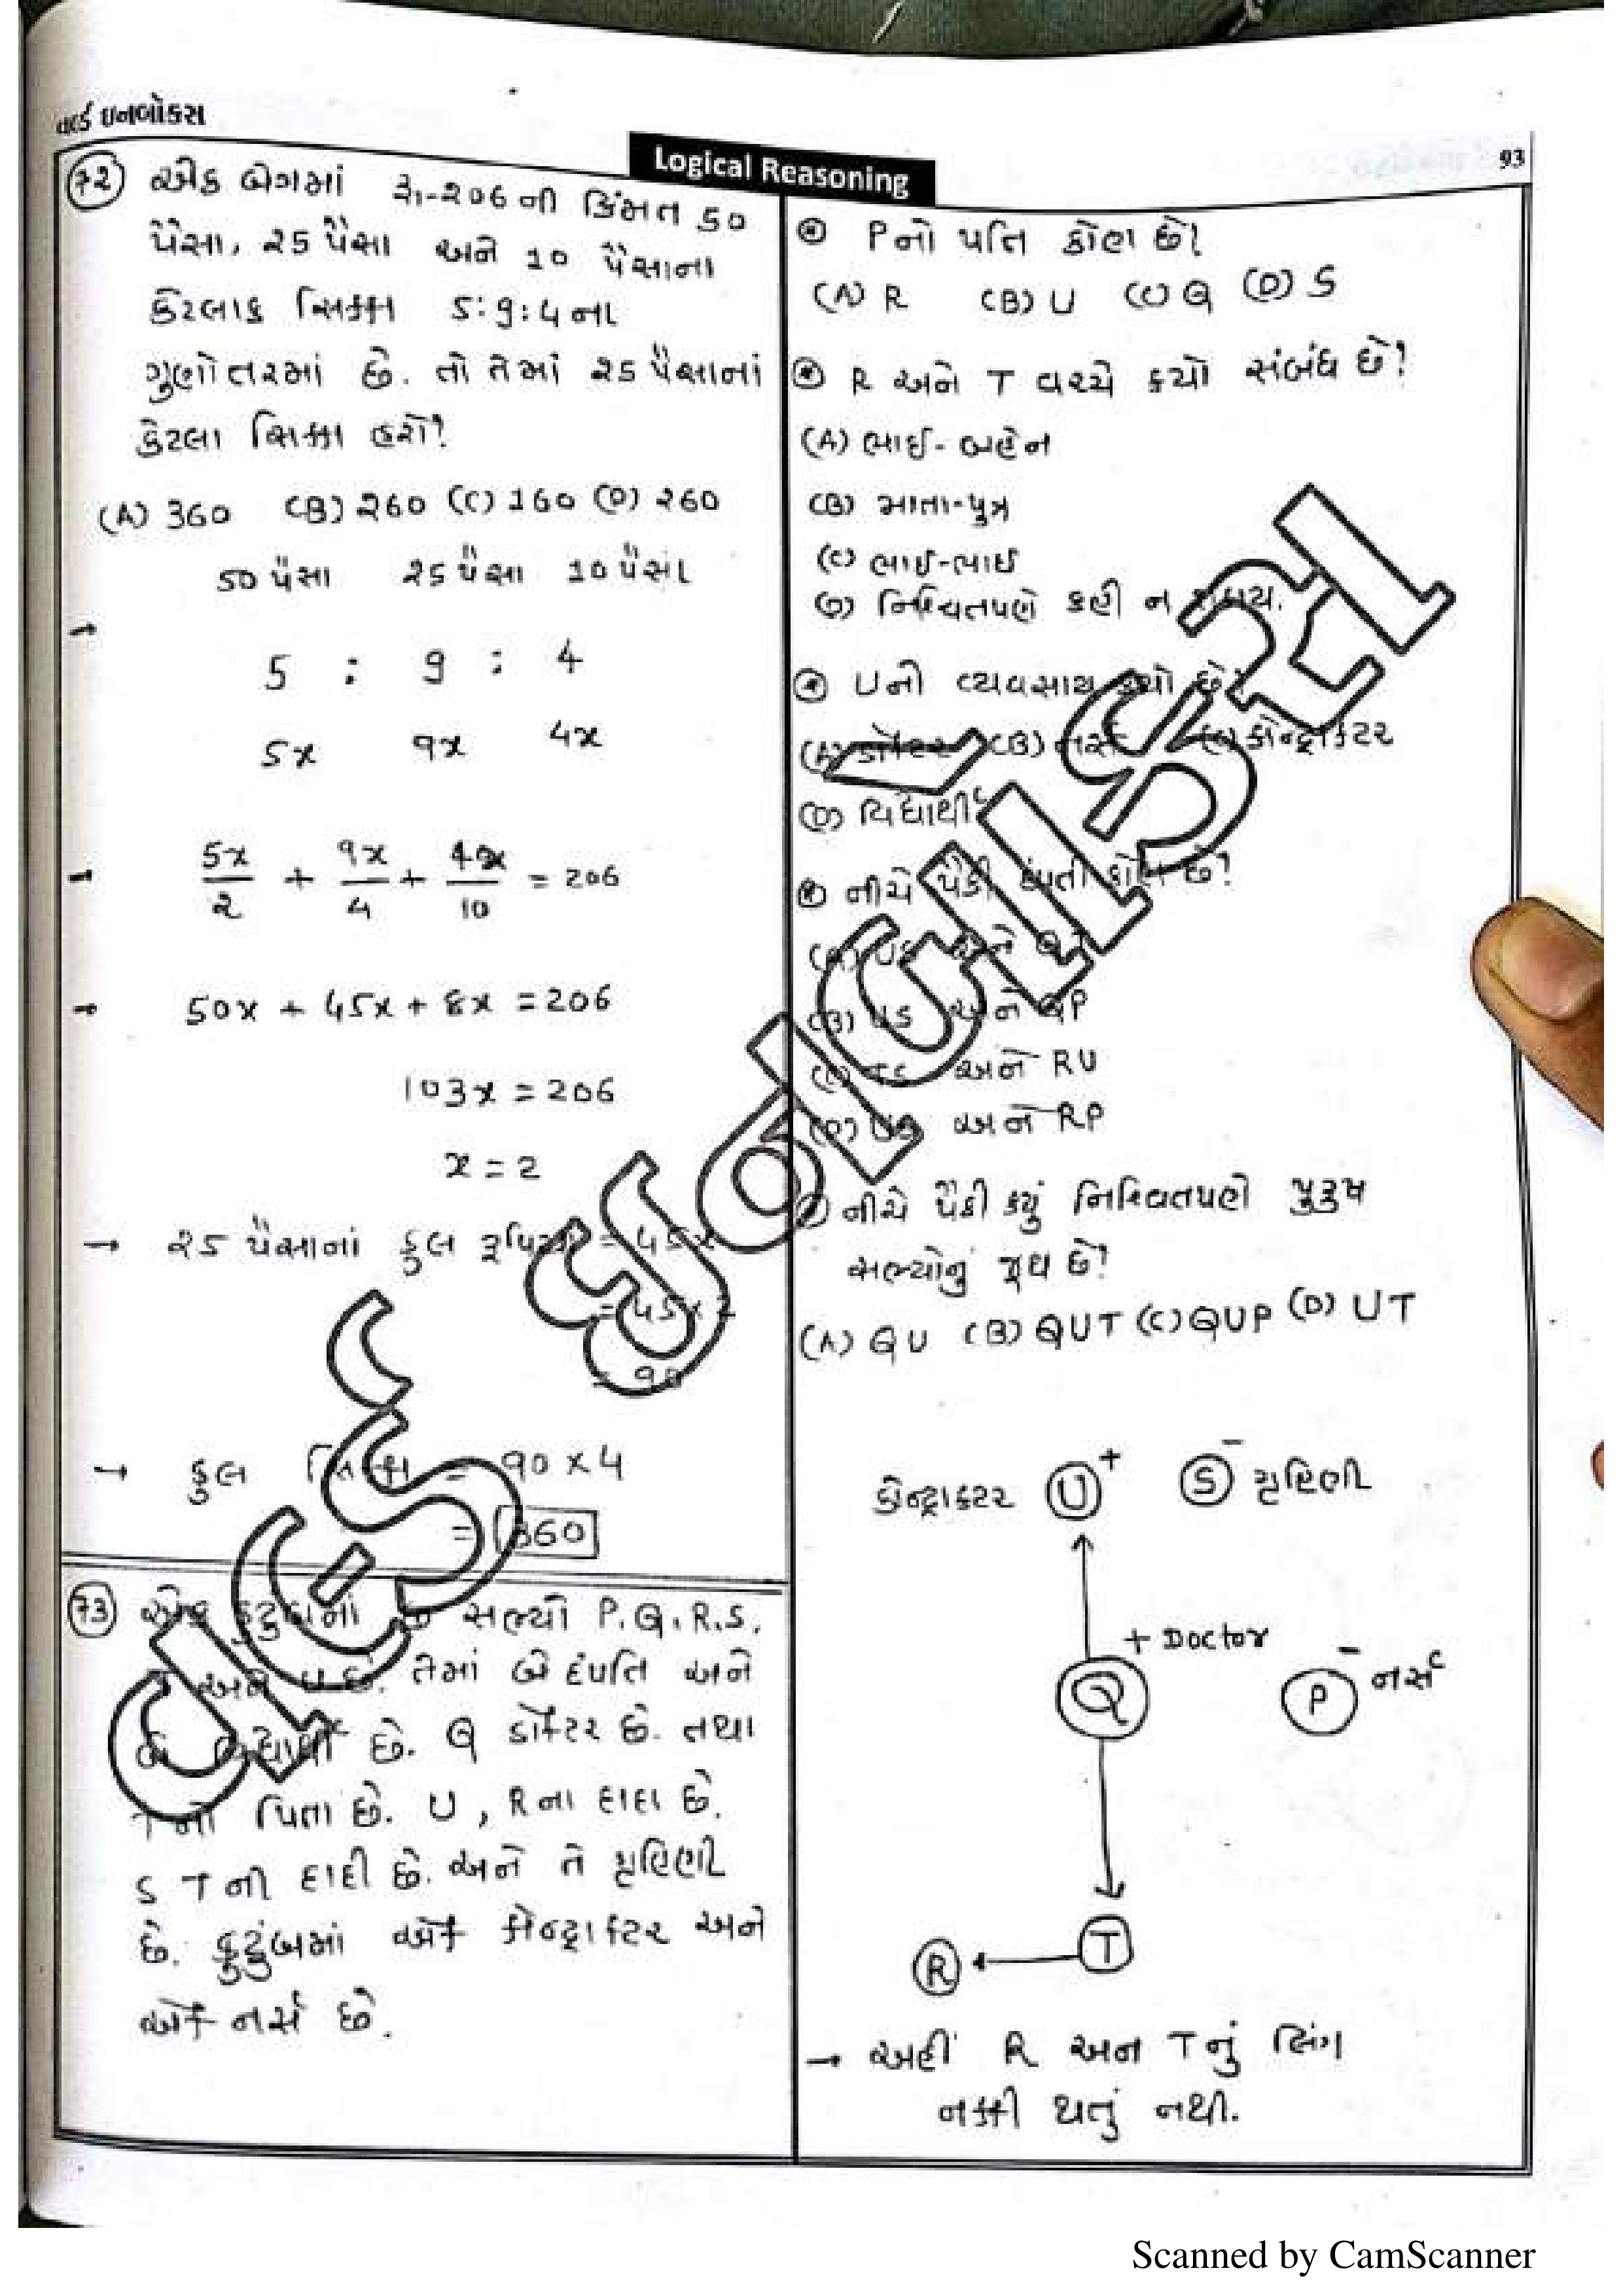 વર્લ્ડ ઇનબોક્સ
Logical Reasoning
93
72 એક બેગમાં રૂા-206 ની કિંમત 50
પૈસા, 25 પૈસા અને 10 પૈસાના
કેટલાક સિક્કા 5:9:4 ના
ગુણોતરમાં છે. તો તેમાં 25 પૈસાનાં
કેટલા સિક્કા હશે?
(A) 360 (B) 260 (C) 160 (D) 260
50 પૈસા 25 પૈસા 10 પૈસા
→ 5 : 9 : 4
5x 9x 4x
→ 5x/2 + 9x/4 + 4x/10 = 206
→ 50x + 45x + 8x = 206
103x = 206
x = 2
→ 25 પૈસાનાં કુલ રૂપિયા = 45x
= 45x2
= 90
→ કુલ સિક્કા = 90 x 4
= 360
73 એક કુટુંબના સભ્યો P.Q.R.S.
અને U છે. તેમાં બે દંપતિ અને
વિદ્યાર્થી છે. Q ડૉક્ટર છે. તથા
Tનો પિતા છે. U, Rના દાદા છે.
S Tની દાદી છે. અને તે ગૃહિણી
છે. કુટુંબમાં એક કોન્ટ્રાક્ટર અને
એક નર્સ છે.
Pનો પતિ કોણ છે?
(A) R (B) U (C) Q (D) S
R અને T વચ્ચે ક્યો સંબંધ છે?
(A) ભાઈ-બહેન
(B) માતા-પુત્ર
(C) ભાઈ-ભાઈ
(D) નિશ્ચિતપણે કહી ન શકાય.
Uનો વ્યવસાય ક્યો છે?
(A) ડૉક્ટર (B) નર્સ (C) કોન્ટ્રાક્ટર
(D) વિદ્યાર્થી
નીચે પૈકી દંપતી કોણ છે?
(A) અને
(B) US અને QP
(C) અને RU
(D) અને RP
નીચે પૈકી ક્યું નિશ્ચિતપણે પુરુષ
સભ્યોનું જૂથ છે?
(A) QU (B) QUT (C) QUP (D) UT
કોન્ટ્રાક્ટર U + S - ગૃહિણી
Q + Doctor P - નર્સ
R ← T
→ અહીં R અન Tનું લિંગ
નક્કી થતું નથી.
Scanned by CamScanner